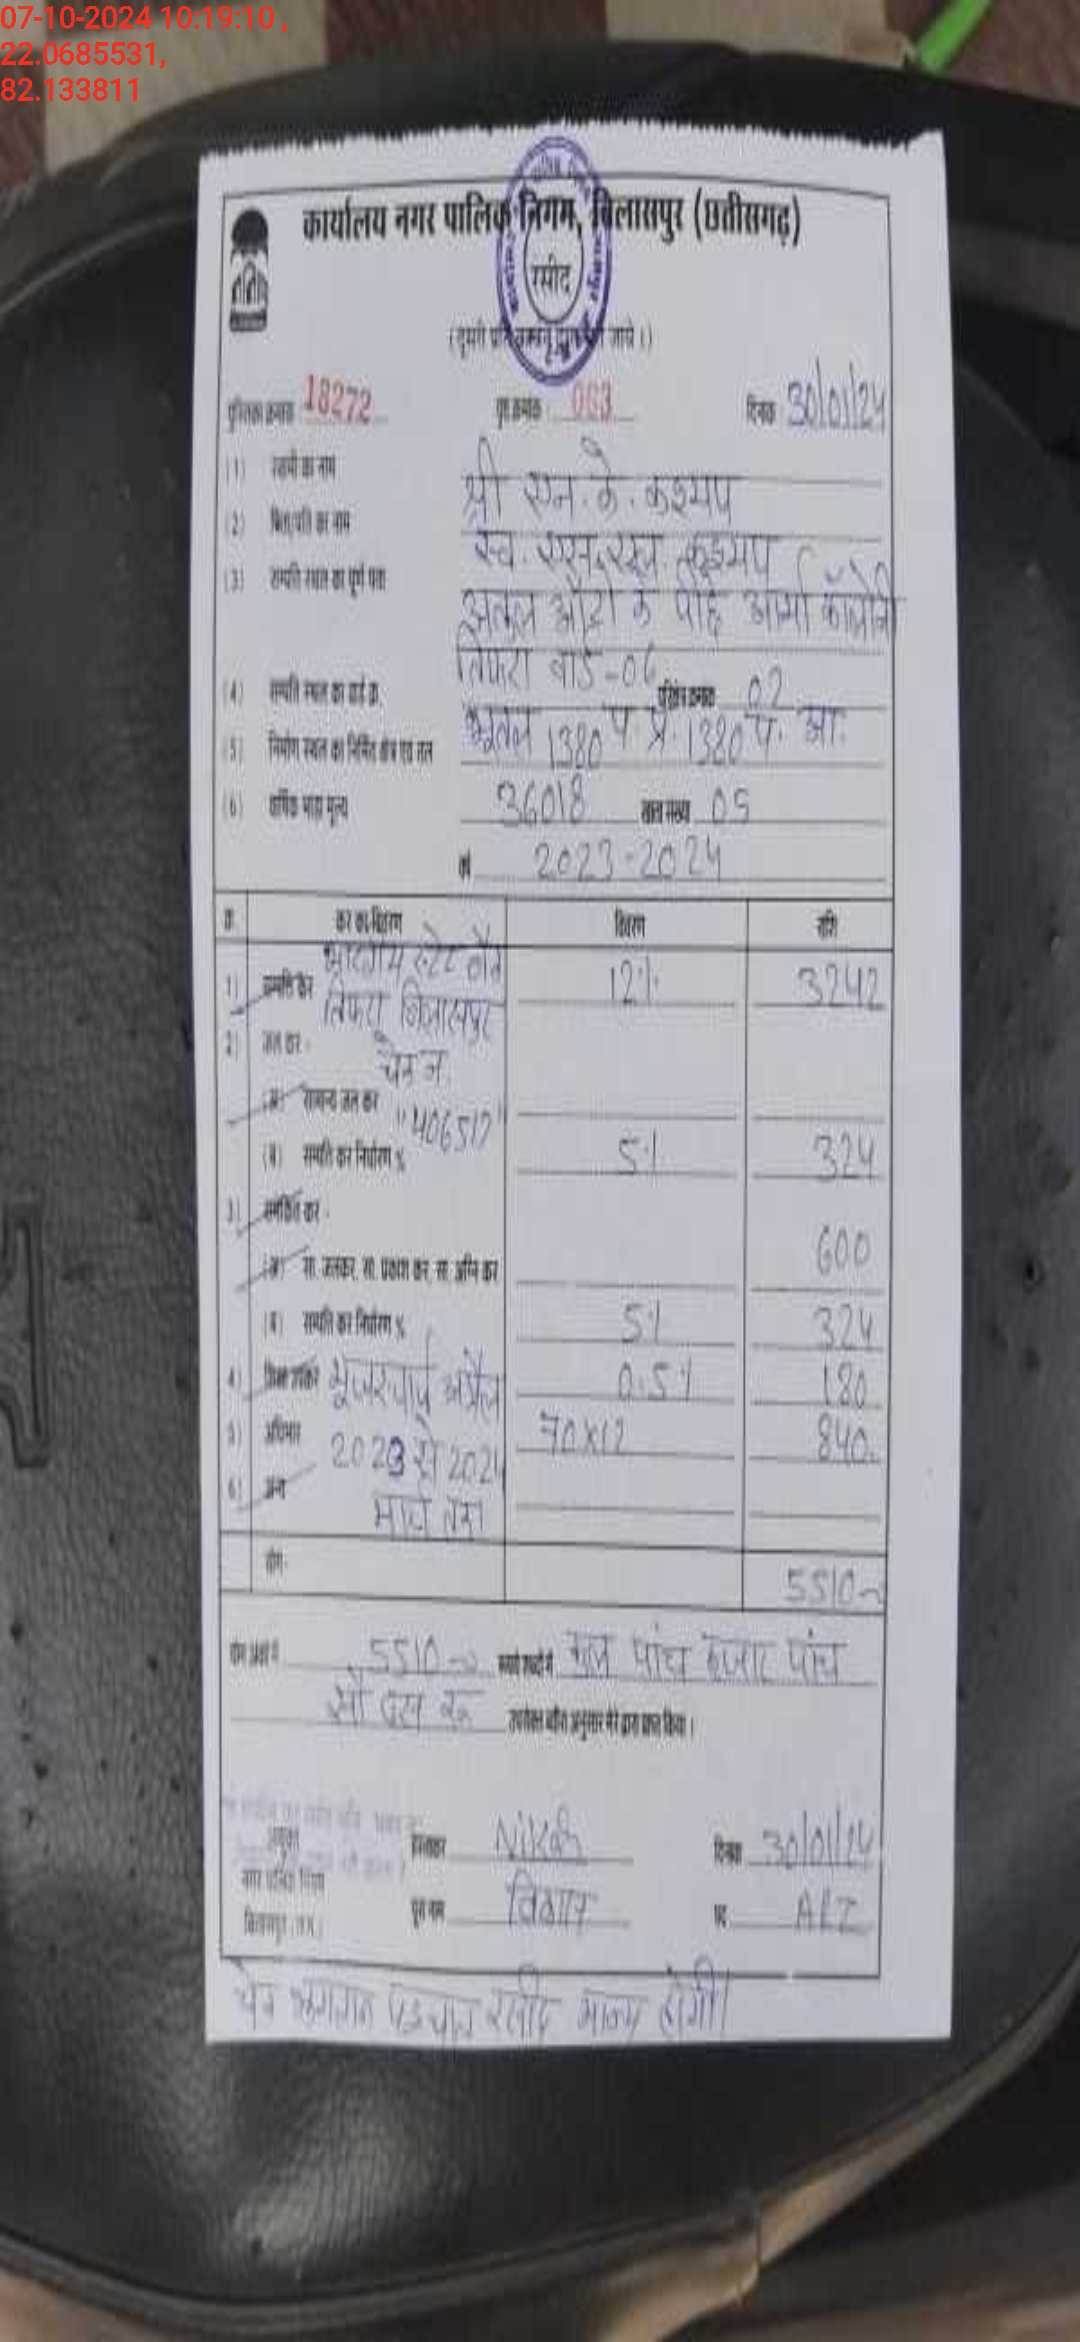 07-10-2024 10:19:10 ,
22.0685531,
82.133811
कार्यालय नगर पालिक निगम, बिलासपुर (छत्तीसगढ़)
रसीद
पुस्तिका क्रमांक 18272 पृष्ठ क्रमांक 063 दिनांक 30/01/24
(1) स्वामी का नाम श्री एन. के. कश्यप
(2) पिता/पति का नाम स्व. एस. एल. कश्यप
(3) सम्पत्ति स्थल का पूर्ण पता ऑटो के पीछे आर्या कॉलोनी
(4) सम्पत्ति स्थल का वार्ड क्र. तिफरा वार्ड-06 परिक्षेत्र क्रमांक 02
(5) निर्माण स्थल का निर्मित क्षेत्र एवं तल भूतल 1380 प. प्र. 1380 प. आ.
(6) वार्षिक भाड़ा मूल्य 36018 खाता संख्या 05
वर्ष 2023-2024
क्र. कर का विवरण विवरण राशि
भारतीय स्टेट बैंक
1) सम्पत्ति कर 12% 3242
तिफरा बिलासपुर
2) जल कर -
चेक नं.
(अ) सामान्य जल कर "406517"
(ब) सम्पत्ति कर निर्धारण % 5% 324
3) समेकित कर -
600
(अ) सा. जलकर, सा. प्रकाश कर, सा. अग्नि कर
(ब) सम्पत्ति कर निर्धारण % 5% 324
4) शिक्षा उपकर यूजर चार्ज अप्रैल 0.5% 180
5) अधिभार 2023 से 2024 70x12 840
6) अन्य मार्च तक
योग- 5510
योग अंकों में 5510 रुपये शब्दों में कुल पांच हजार पांच
सौ दस रू उपरोक्त ब्यौरा अनुसार मेरे द्वारा प्राप्त किया ।
आयुक्त हस्ताक्षर दिनांक 30/01/24
नगर पालिक निगम
बिलासपुर (छ.ग.) पूरा नाम विकास पद ARI
चेक भुगतान पश्चात रसीद मान्य होगी।